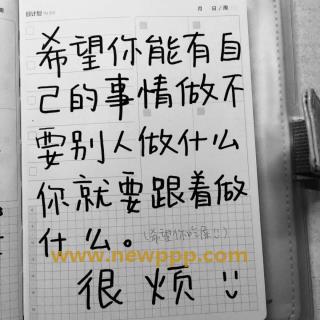 月 日/周
希望你能有自
己的事情做不
要别人做什么
你就要跟着做
什么。
(希望你吃屎
www.newppp.com
很烦